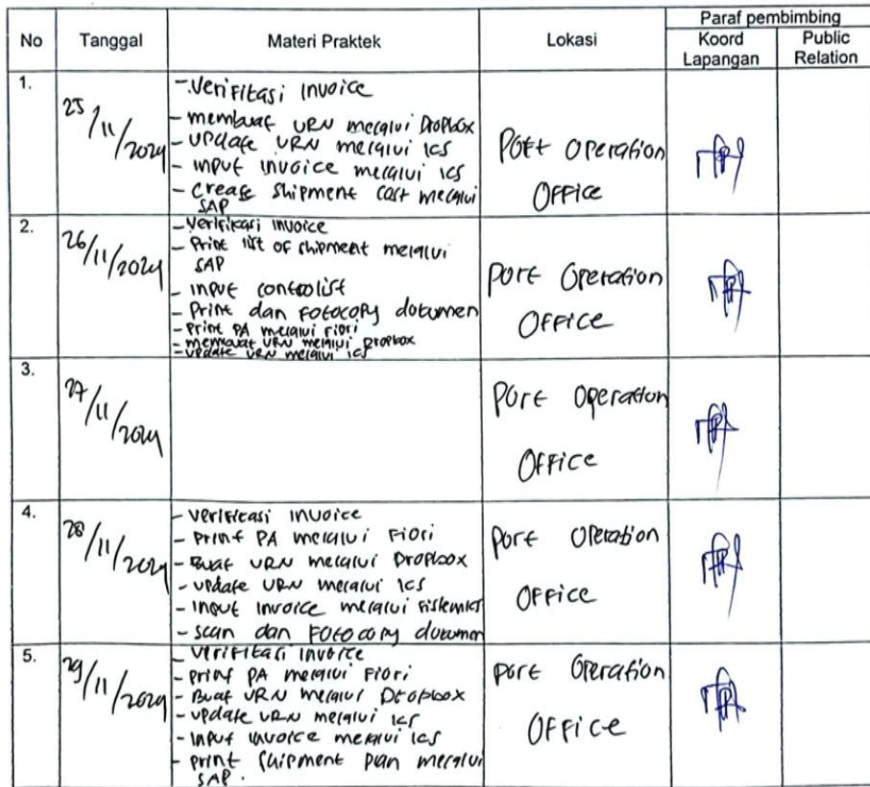 No Tanggal Materi Praktek Lokasi Paraf pembimbing
Koord Lapangan Public Relation
1. 25/11/2024
- Verifikasi Invoice
- membuat URN melalui Dropbox
- update URN melalui ICS
- input invoice melalui ICS
- Create Shipment Cost melalui
SAP
Port Operation
Office
2. 26/11/2024
- Verifikasi invoice
- Print list of shipment melalui
SAP
- Input controlist
- Print dan Fotocopy dokumen
- Print PA melalui Fiori
- membuat URN melalui Dropbox
- update URN melalui ICS
Port Operation
Office
3. 27/11/2024
Port Operation
Office
4. 28/11/2024
- Verifikasi invoice
- Print PA melalui Fiori
- Buat URN melalui Dropbox
- update URN melalui ICS
- Input Invoice melalui
- Scan dan Fotocopy dokumen
Port Operation
Office
5. 29/11/2024
- Verifikasi invoice
- print PA melalui Fiori
- Buat URN melalui Dropbox
- update URN melalui ICS
- Input invoice melalui ICS
- print Shipment plan melalui
SAP.
Port Operation
Office